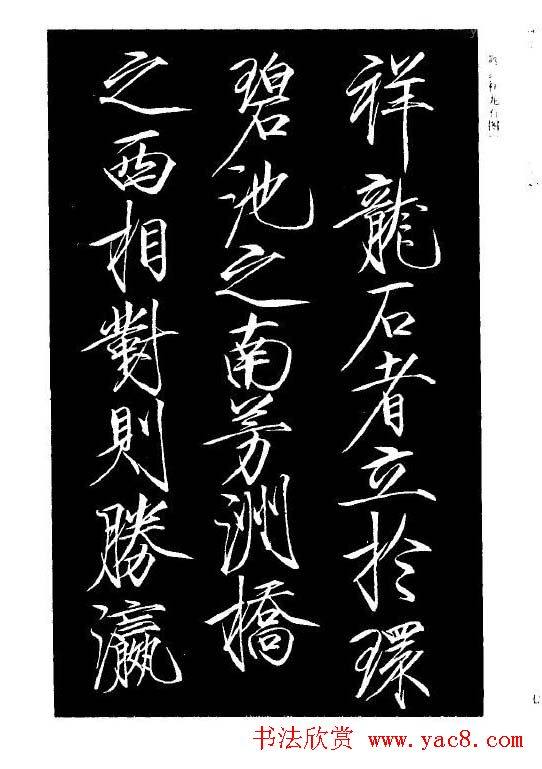 祥龍石者立於環
碧池之南芳洲橋
之西相對則勝瀛
书法欣赏 www.yac8.com